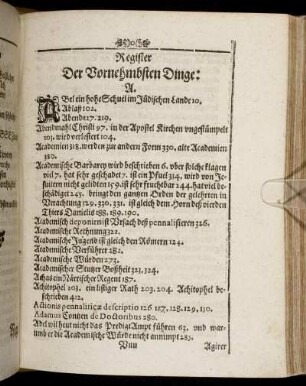 Register
Der Vornehmbsten Dinge:
A.
ABel ein hohe Schuel im Jüdischen Lande 10.
Ablaß 102.
Abendt 17. 219.
Abendmahl Christi 97. in der Apostel Kirchen vngestümpelt
103. wird verlestert 104.
Academien 318. werden zur andern Form 330. alte Academien
380.
Academische Barbarey wird beschrieben 6. vber solche klagen
viel 7. hat sehr geschadet 7. ist ein Pfuel 314. wird von Je-
suiten nicht gelidten 19. ist sehr fruchtbar 244. hat viel be-
schädiget 245. bringt den gantzen Orden der gelehrten in
Verachtung 129. 330. 331. ist gleich dem Horn deß vierden
Thiers Danielis 188. 189. 190.
Academisch deponiern ist Vrsach deß pennalisieren 326.
Academische Rechnung 322.
Academische Jugend ist gleich den Römern 124.
Academische Verführer 282.
Academische Würde 273.
Academischer Stutzer Boßheit 323. 324.
Achas ein Närrischer Regent 187.
Achitophel 203. ein listiger Rath 203. 204. Achitophel be-
schrieben 412.
Actionis pennaliticæ descriptio 126 127. 128. 129. 130.
Adamus Contzen de Doctoribus 280.
Adel wil heut nicht das Predigt Ampt führen 63. vnd war-
umb er die Academische Würde nicht annimpt 283.
Vuu Agirer